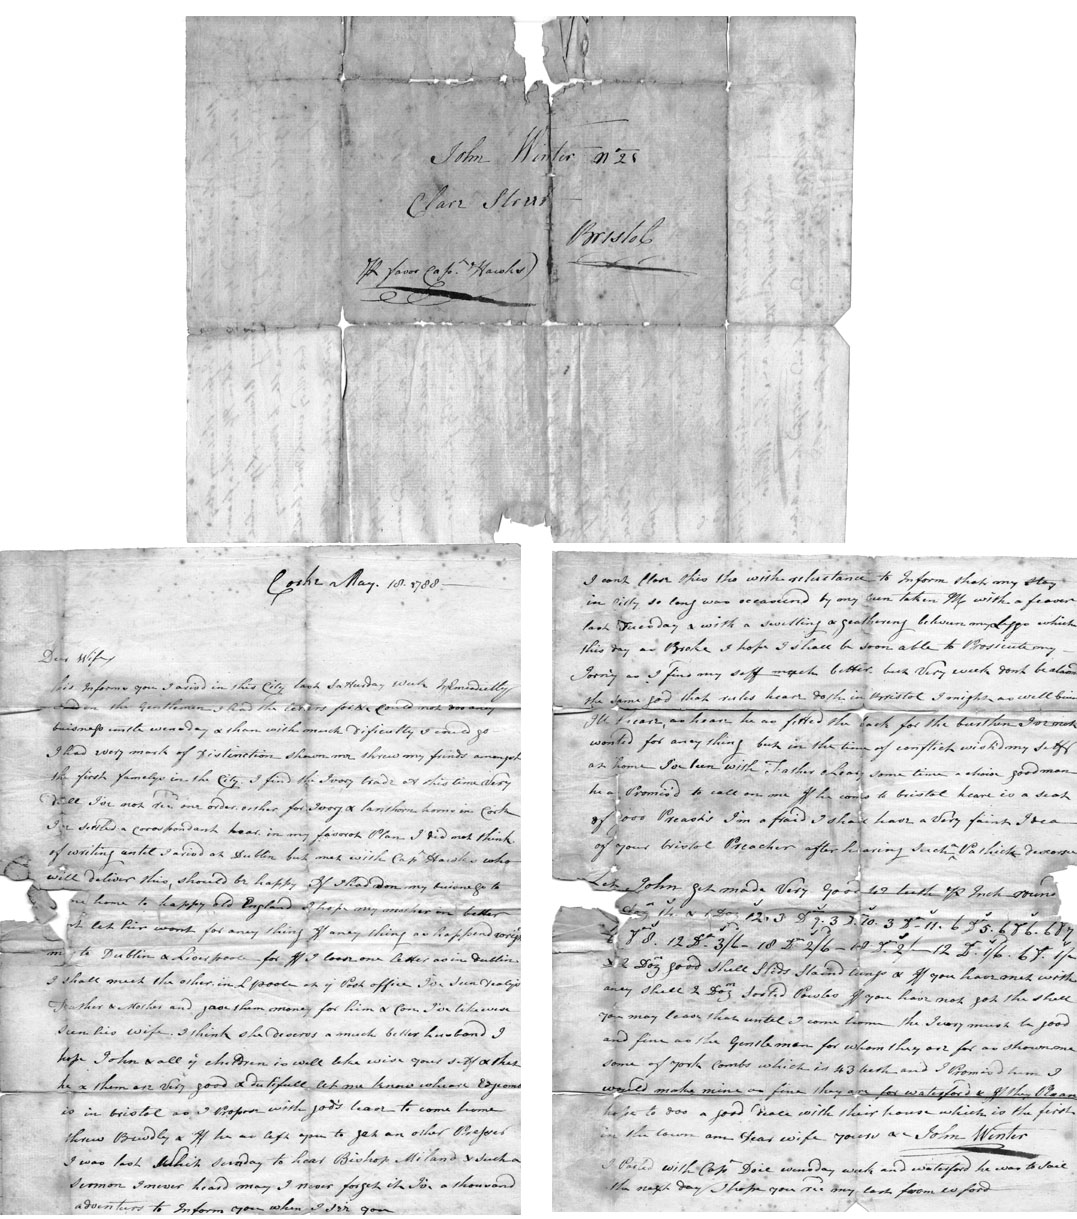 John Winter No 21
Clare Street
Bristol
Pr favor Capn. Hawks
Corke May. 18. 1788
Dear Wife
this Informs you I arivd in this City last Satturday week Immeadietly
on the Gentlemen I had the Leters for & Could not do any
buisness untle wensday & than with much Dificultly I could go
I had very mark of Distinction shown me threw my friends amongst
the first famelys in the City. I find the Ivory trade at this time very
Dull I've not one order either for Ivory & lanthorn horns in Cork
I've setled a Corospondant hear. in my favorot Plan I did not think
of writing until I arivd at Dublin but met with Capn Hawks who
will deliver this, should be happy If I had don my buisness to
come home to happy old England I hope my mother in better
let hir want for aney thing If aney thing as happend wright
me to Dublin & Liverpoole for If I loose one letter as in Dublin
I shall meet the other in Lpoole at ye Post office I've Seen Nealys
Feather & Mother and gave them money for him & Con. I've likewise
Seen his wife. I think she deservs a much better husband I
hope John & all ye children is will like wise your Self & that
he & them are very good & dutifull let me know wheare
is in bristol as I Propose with god's leave to come home
threw Bewdley & If he as left you to get an other Presser
I was last Whit Sunday to hear Bishop Miland & such a
Sermon I never heard may I never forget it I've a thousand
adventurs to Inform you when I See you
I cant Close this tho with reluctance to Inform that my stay
in City so long was occasiond by my been taken Ill with a feaver
last Tuesday & with a swelling & geathering between my Leggs which
this day as Broke I hope I shall be soon able to Prosicute my
Jorney as I find my self much better but very week dont be alarmd
the same god that ruls hear doth in Bristol I might as well bin
Ill I hear, as hear he as fitted the back for the burthen I've not
wantid for aney thing but in the time of conflict wishd my Self
at home I've been with Father Oleary some time a choice good man
he a Promis'd to call on me If he coms to bristol heare is a seat
of 7000 Preasts I'm afraid I shall have a very faint Idea
of your bristol Preacher after hearing Such Pathick discorse
Let John get made Very good 42 teeth Pr Inch round
& 2 Dozn good Shell Slids Staind tungs & If you have met with
aney Shell 2 Dozn Sorted If you have not got the shell
you may leave that until I come home the Ivory must be good
and fine as the Gentleman for whom they are for as shown me
some of york Combs which is 43 teeth and I Promisd him I
would make mine as fine they are for waterford & If they Please
hope to doo a good trade with their house which is the first
in the town am Dear wife yours &c John Winter
I Parted with Capn Doie wensday week and waterford he was to Sail
the next day I hope you re'd my last from w ford